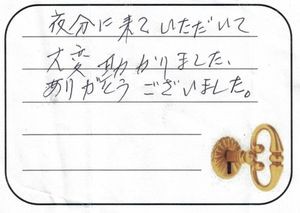 夜分に来ていただいて
大変助かりました、
ありがとうございました。